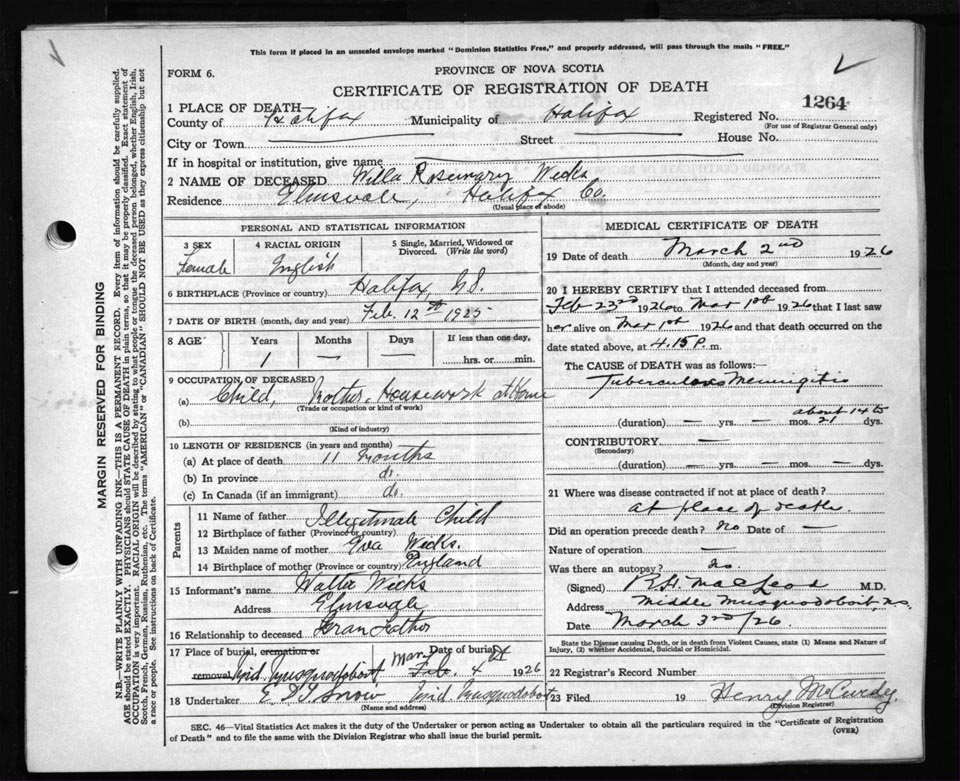 This form if placed in an unsealed envelope marked "Dominion Statistics Free," and properly addressed, will pass through the mails "FREE."
FORM 6.
PROVINCE OF NOVA SCOTIA
CERTIFICATE OF REGISTRATION OF DEATH
1264
1 PLACE OF DEATH—
County of Halifax Municipality of Halifax Registered No.
(For use of Registrar General only)
City or Town Street House No.
If in hospital or institution, give name
2 NAME OF DECEASED Willa Rosemary Weeks
Residence Elmsvale, Halifax Co.
(Usual place of abode)
PERSONAL AND STATISTICAL INFORMATION
3 SEX 4 RACIAL ORIGIN 5 Single, Married, Widowed or Divorced. (Write the word)
Female English
6 BIRTHPLACE (Province or country) Halifax, N.S.
7 DATE OF BIRTH (month, day and year) Feb. 12th 1925
8 AGE Years Months Days If less than one day,
1 — — hrs. or min.
9 OCCUPATION OF DECEASED
(a) Child, Mother, Housework at Home
(Trade or occupation or kind of work)
(b)
(Kind of industry)
10 LENGTH OF RESIDENCE (in years and months)
(a) At place of death 11 months
(b) In province do.
(c) In Canada (if an immigrant) do.
Parents
11 Name of father Illegitimate Child
12 Birthplace of father (Province or country)
13 Maiden name of mother Eva Weeks.
14 Birthplace of mother (Province or country) England
15 Informant's name Walter Weeks
Address Elmsvale,
16 Relationship to deceased Grandfather
17 Place of burial, cremation or removal Mid. Musquodoboit Date of burial Mar. Feb. 4th 1926
18 Undertaker E. D. Snow, Mid. Musquodoboit
(Name and address)
MEDICAL CERTIFICATE OF DEATH
19 Date of death March 2nd 1926
(Month, day and year)
20 I HEREBY CERTIFY that I attended deceased from
Feb 23rd 1926 to Mar 1st 1926 that I last saw
her alive on Mar 1st 1926 and that death occurred on the
date stated above, at 4.15 P. m.
The CAUSE OF DEATH was as follows:—
Tuberculous Meningitis
about 14 to
(duration) — yrs. — mos. 21 dys.
CONTRIBUTORY —
(Secondary)
(duration) — yrs. — mos. — dys.
21 Where was disease contracted if not at place of death?
at place of death.
Did an operation precede death? No Date of —
Nature of operation —
Was there an autopsy? No.
(Signed) R.H. MacLeod M.D.
Address Middle Musquodoboit, N.S.
Date March 3rd/26
State the Disease causing Death, or in death from Violent Causes, state (1) Means and Nature of
Injury, (2) whether Accidental, Suicidal or Homicidal.
22 Registrar's Record Number
23 Filed 19 Henry McCurdy
(Division Registrar)
SEC. 46—Vital Statistics Act makes it the duty of the Undertaker or person acting as Undertaker to obtain all the particulars required in the "Certificate of Registration
of Death" and to file the same with the Division Registrar who shall issue the burial permit. (OVER)
MARGIN RESERVED FOR BINDING
N.B.—WRITE PLAINLY WITH UNFADING INK—THIS IS A PERMANENT RECORD. Every item of information should be carefully supplied.
AGE should be stated EXACTLY. PHYSICIANS should STATE CAUSE OF DEATH in plain terms, so that it may be properly classified. Exact statement of
OCCUPATION is very important. RACIAL ORIGIN will be described by stating to what people or tongue the deceased person belonged, whether English, Irish,
Scotch, French, German, Russian, Ruthenian, etc. The terms "AMERICAN" or "CANADIAN" SHOULD NOT BE USED as they express citizenship but not
a race or people. See instructions on back of Certificate.